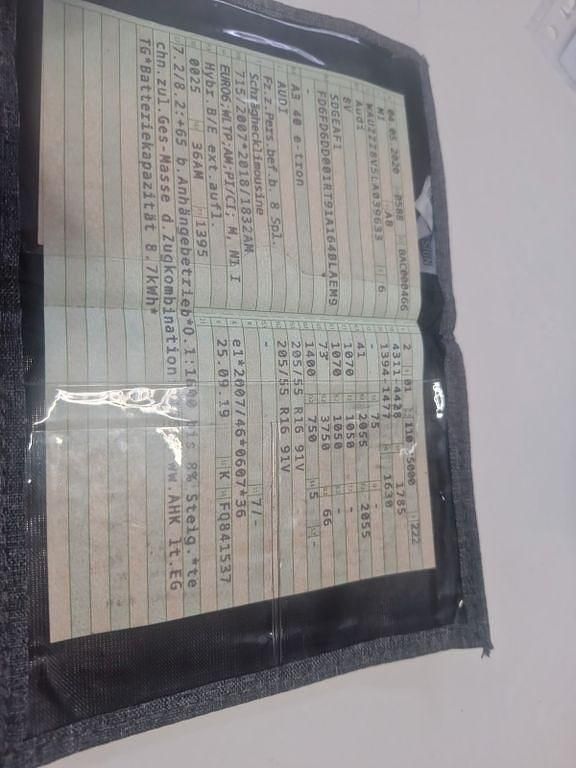 04.05.2020 0588 BAC000466
M1 AB
WAUZZZ8V5LA039633 6
Audi
8V
SDGEAF1
A3 40 e-tron
-
AUDI
Fz.z.Pers.bef.b. 8 Spl.
Schräghecklimousine
715/2007*2018/1832AM
EURO6;WLTP;AM;PI/CI; M, N1 I
Hybr.B/E ext.aufl.
0025 36AM 1395
7.2/8.2:+65 b.Anhängebetrieb*O.1: bis 8% Steig.*te
chn.zul.Ges-Masse d.Zugkombination AHK lt.EG
TG*Batteriekapazität 8.7kWh*
2 01 110 5000 222
4311 4428 1785
1394 1477 1630
- 75 -
41 2055 2055
1070 1050 -
1070 1050 -
73 3750 66
1400 750 5 -
205/55 R16 91V
205/55 R16 91V
- 7/-
e1*2007/46*0607*36
25.09.19 K FQ841537